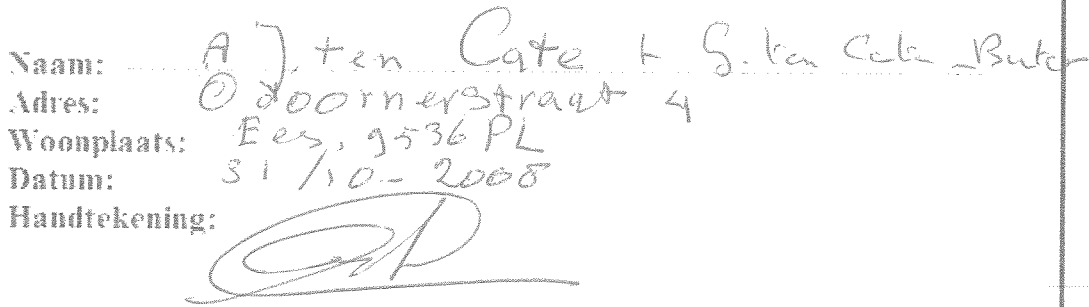 Naam: A J. ten Cate + G. ten Cate -
Adres: Odoornerstraat 4
Woonplaats: Ees, 9536 PL
Datum: 31/10-2008
Handtekening: